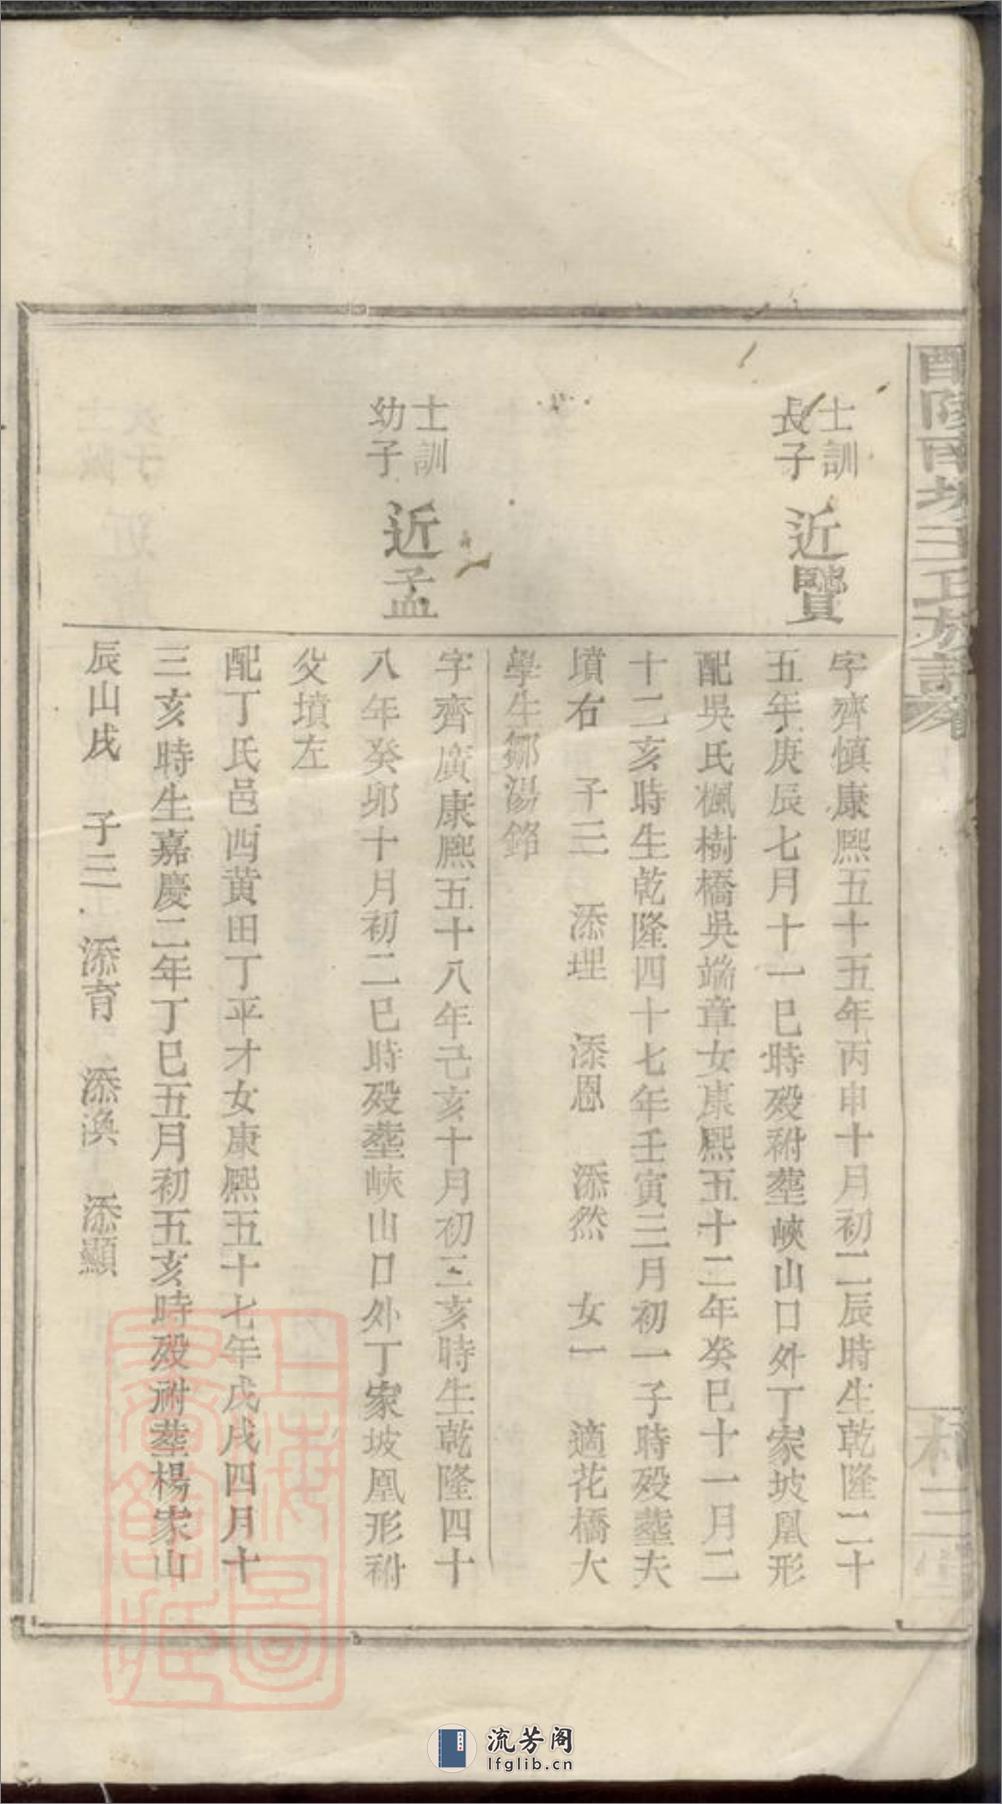 醴陵南城王氏族譜
士訓
長子
近覽
字齊慎康熙五十五年丙申十月初二辰時生乾隆二十
五年庚辰七月十一巳時殁祔塟峽山口外丁家坡凰形
配吳氏楓樹橋吳端章女康熙五十二年癸巳十一月二
十二亥時生乾隆四十七年壬寅三月初一子時殁塟夫
墳右 子三 添理 添恩 添然 女一 適花橋大
學生鄒湯銘
士訓
幼子
近孟
字齊廣康熙五十八年己亥十月初三亥時生乾隆四十
八年癸卯十月初二巳時殁塟峽山口外丁家坡凰形祔
父墳左
配丁氏邑西黄田丁平才女康熙五十七年戊戌四月十
三亥時生嘉慶二年丁巳五月初五亥時殁祔塟楊家山
辰山戌 子三 添育 添渙 添顯
上海圖書館藏
流芳阁
lfglib.cn